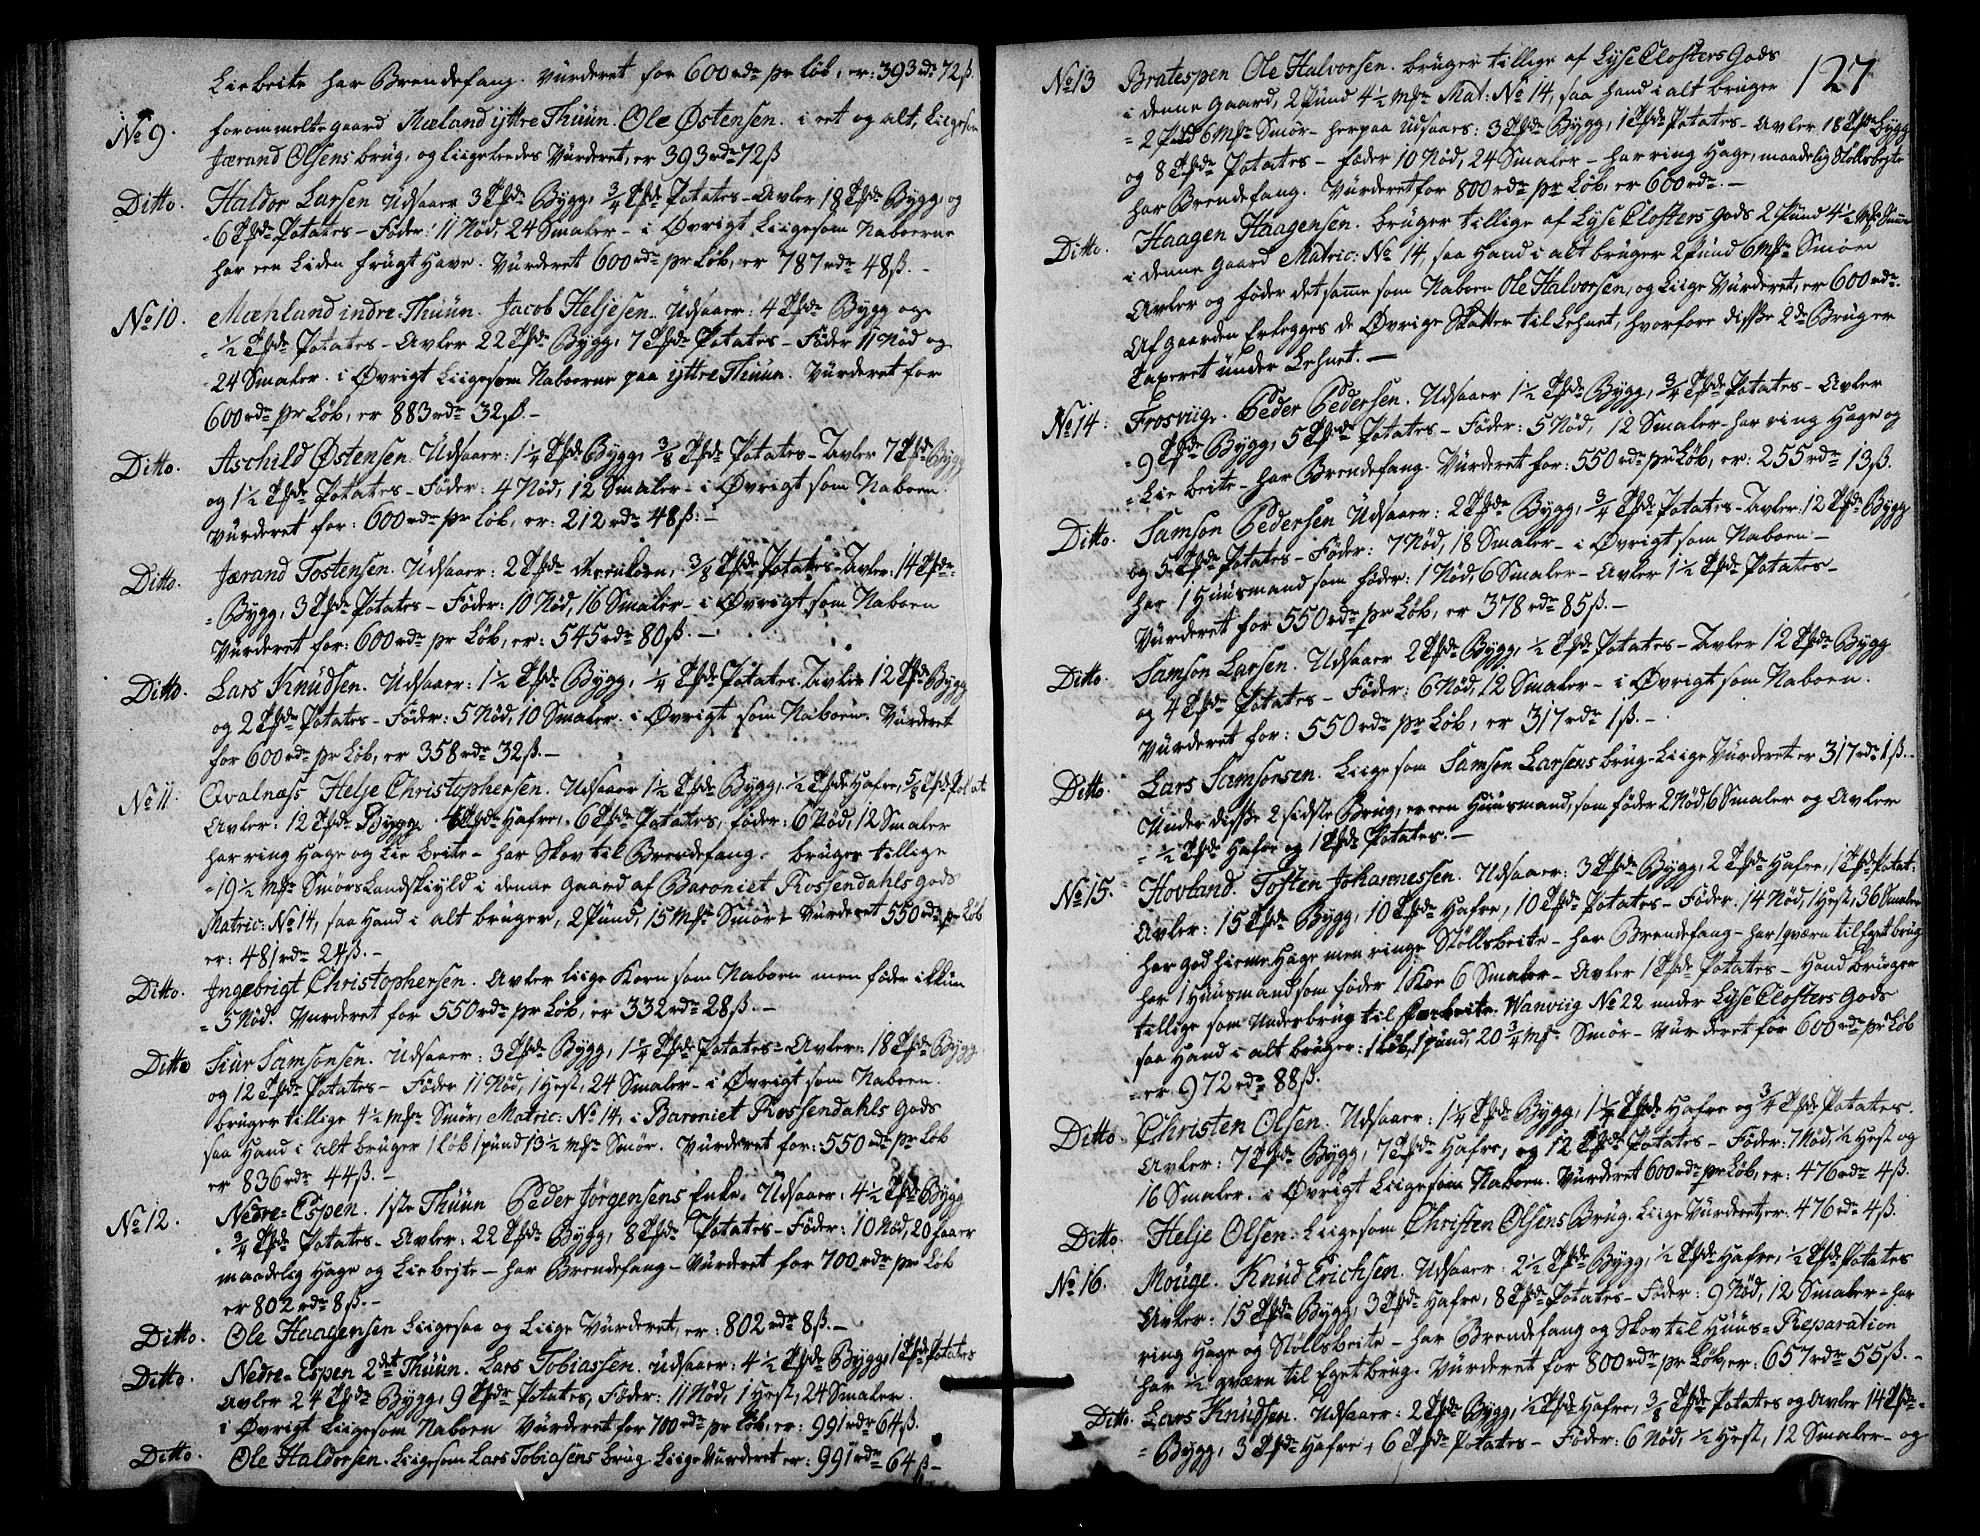 Lie beite har Brendefang. Vürderet for 600 rdr pr Løb, er: 393 rdr 72ß.
No 9. forommelte gaard Mæland ÿttre Thüün. Ole Østensen. i eet og alt, Liigesom
Jærand Olsens brüg, og liigeleedes Vürderet, er 393 rdr 72ß
Ditto. Haldor Larsen Üdsaaer 3 Tpdr Bÿgg, 3/4 Tpdr Potates - Avler 18 Tpdr Bÿgg, og
6 Tpdr Potates - Føder: 11 Nød, 24 Smaler - i Øvrigt Liigesom Naboerne
har een Liden frügt Have. Vürderet 600 rdr pr Løb, er 787 rdr 48ß. -
No 10. Mæhland indre Thüün. Jacob Heljesen. Üdsaaer: 4 Tpdr Bÿgg og
1/2 Tpdr Potates - Avler 22 Tpdr Bÿgg, 7 Tpdr Potates - Føder 11 Nød og
24 Smaler. i Øvrigt Liigesom Naboerne paa ÿttre Thüün. Vürderet for
600 rdr pr Løb, er 883 rdr 32ß. -
Ditto. Aschild Østensen. Üdsaaer: 1 1/4 Tpdr Bÿgg, 3/8 Tpdr Potates - Avler 7 Tpdr Bÿgg
og 1 1/2 Tpdr Potates - Føder: 4 Nød, 12 Smaler - i Øvrigt som Naboen.
Vürderet for: 600 rdr pr Løb, er: 212 rdr 48ß: -
Ditto. Jærand Tostensen. Üdsaaer: 2 Tpdr 3/8 Tpdr Potates - Avler: 14 Tpdr
Bÿgg, 3 Tpdr Potates - Føder: 10 Nød, 16 Smaler - i Øvrigt som Naboen
Vürderet for: 600 rdr pr Løb, er: 545 rdr 80ß. -
Ditto. Lars Knüdsen. Üdsaaer: 1 1/2 Tpdr Bÿgg, 1/4 Tpdr Potates. Avler 12 Tpdr Bÿgg
og 2 Tpdr Potates - Føder: 5 Nød, 10 Smaler. i Øvrigt som Naboen. Vürderet
for 600 rdr pr Løb, er 358 rdr 32ß. -
No 11. Qvalnæss Helje Christophersen. Üdsaaer 1 1/2 Tpdr Bÿgg, 1/2 Tpdr Hafre, 5/8 Tpdr Potat
Avler: 12 Tpdr Bÿgg, 4 Tpdr Hafre, 6 Tpdr Potates, føder: 6 Nød, 12 Smaler
har ring Hage og Lie beite - har Skov til Brendefang. brüger tillige
19 1/2 Mpr Smørs Landskÿld i denne Gaard af Baroniet Rossendahls Gods
Matric: No 14, saa Hand i alt brüger, 2 Pünd, 15 Mpr Smør - Vürderet 550 rdr pr Løb
er: 481 rdr 24ß. -
Ditto. Ingebrigt Christophersen. Avler liige Korn som Naboen men føder ickün
5 Nød. Vürderet for 550 rdr pr Løb, er 332 rdr 28ß. -
Ditto Siur Samsonsen. Üdsaaer: 3 Tpdr Bÿgg, 1 1/4 Tpdr Potates - Avler: 18 Tpdr Bÿgg
og 12 Tpdr Potates - Føder 11 Nød, 1 Hest, 24 Smaler - i Øvrigt som Naboen.
brüger tillige 4 1/2 Mpr Smør, Matric: No 14, i Baroniet Rossendahls Gods
saa Hand i alt brüger 1 Løb 1 pünd 13 1/2 Mpr Smør. Vürderet for: 550 rdr pr Løb
er 836 rdr 44ß. -
No 12. Nedre-Espen. 1ste Thüün Peder Jörgensens Enke. Üdsaaer: 4 1/2 Tpdr Bÿgg
3/4 Tpdr Potates - Avler: 22 Tpdr Bÿgg, 8 Tpdr Potates - Føder: 10 Nød, 20 faaer
maadelig Hage og Lie bejte - har Brendefang - Vürderet for 700 rdr pr Løb
er 802 rdr 8ß. -
Ditto. Ole Haagensen Liigesaa og Liige Vürderet, er: 802 rdr 8ß. -
Ditto. Nedre-Espen 2det Thüün. Lars Tobiassen. Üdsaaer: 4 1/2 Tpdr Bÿgg, 1 Tpdr Potates
Avler 24 Tpdr Bÿgg, 9 Tpdr Potates, Føder: 11 Nød, 1 Hest, 24 Smaler.
i Øvrigt Liigesom Naboen Vürderet for 700 rdr pr Løb, er: 991 rdr 64ß.
Ditto. Ole Haldorsen. Liigesom Lars Tobiasens brüg Liige Vürderet er: 991 rdr 64ß -
127
No 13 Bratespen Ole Halvorsen. brüger tillige af Lÿse Closters Gods
i denne Gaard, 2 Pünd 4 1/2 Mpr Mat: No 14, saa hand i alt brüger
2 Pünd 6 Mpr Smør - herpaa Udsaaes: 3 Tpdr Bÿgg, 1 Tpdr Potates - Avler 18 Tpdr Bÿgg
og 8 Tpdr Potates - føder 10 Nød, 24 Smaler - har ring Hage, maadelig Støllsbejte
har Brendefang. Vürderet for 800 rdr pr Løb, er 600 rdr. -
Ditto. Haagen Haagensen. brüger tillige af Lÿse Closters Gods 2 Pünd 4 1/2 Mpr Smør
i denne Gaard Matric: No 14, saa Hand i alt brüger 2 Pünd 6 Mpr Smør
Avler og føder det samme som Naboen Ole Halvorsen, og Liige Vürderet, er 600 rdr.
Af Gaarden Erlegges de Øvrige Skatter til Lehnet, hvorfore disse 2de Brüger
Taxeret ünder Lehnet. -
No 14: Frosviig. Peder Pedersen. Udsaaer 1 1/2 Tpdr Bÿgg, 3/4 Tpdr Potates - Avler
9 Tpdr Bÿgg, 5 Tpdr Potates - Føder: 5 Nød, 12 Smaler - har ring Hage og
Lie beite - har Brendefang. Vürderet for: 550 rdr pr Løb, er: 255 rdr 13ß.
Ditto. Samson Pedersen Üdsaaer: 2 Tpdr Bÿgg, 3/4 Tpdr Potates - Avler: 12 Tpdr Bÿgg
og 5 Tpdr Potates - Føder: 7 Nød, 18 Smaler - i Øvrigt som Naboen -
har 1 Hüüsmand som føder: 1 Nød, 6 Smaler - Avler 1 1/2 Tpdr Potates -
Vürderet for 550 rdr pr Løb, er 378 rdr 85ß. -
Ditto. Samson Larsen. Udsaaer 2 Tpdr Bÿgg, 1/2 Tpdr Potates - Avler 12 Tpdr Bÿgg
og 4 Tpdr Potates - Føder: 6 Nød, 12 Smaler - i Øvrigt som Naboen.
Vürderet for: 550 rdr pr Løb, er 317 rdr 1ß. -
Ditto. Lars Samsonsen. Liige som Samson Larsens brüg - Liige Vürderet er 317 rdr 1ß. -
Ünder disse 2 sidste Brüg, er een Hüüsmand, som føder 2 Nød, 6 Smaler og Avler
1/2 Tpdr Hafre og 1 Tpdr Potates. -
No 15. Hovland. Tosten Johannessen. Udsaaer: 3 Tpdr Bÿgg, 2 Tpdr Hafre, 1 Tpdr Potat:
Avler: 15 Tpdr Bÿgg, 10 Tpdr Hafre, 10 Tpdr Potates - Føder: 14 Nød, 1 Hest, 36 Smaler
har god hieme Hage men ringe Støllsbeite - har Brendefang - har 1 qværn til Eget brüg
har 1 Hüüsmand som føder 1 Koe 6 Smaler - Avler 1 Tpdr Potates - Hand brüger
tillige som Underbrüg til Wanviig No 22 under Lÿse Closters Gods
saa Hand i alt brüger: 1 Løb, 1 pünd, 20 3/4 Mpr Smør - Vürderet for 600 rdr pr Løb
er 972 rdr 88ß.
Ditto. Christen Olsen. Udsaaer: 1 1/4 Tpdr Bÿgg, 1 1/4 Tpdr Hafre og 3/4 Tpdr Potates.
Avler: 7 Tpdr Bÿgg, 7 Tpdr Hafre, og 12 Tpdr Potates - Føder: 7 Nød, 1/2 Hest og
16 Smaler. i Øvrigt Liigesom Naboen. Vürderet 600 rdr pr Løb, er: 476 rdr 4ß.
Ditto. Helje Olsen. Liigesom Christen Olsens Brüg. Liige Vürderet, er: 476 rdr 4ß.
No 16. Mouge. Knüd Erichsen. Udsaaer: 2 1/2 Tpdr Bÿgg, 1/2 Tpdr Hafre, 1/2 Tpdr Potates
Avler: 15 Tpdr Bÿgg, 3 Tpdr Hafre, 8 Tpdr Potates - Føder: 9 Nød, 12 Smaler - har
ring Hage og Støllsbeite - har Brendefang og Skov til Hüüs-Reparation
har 1/2 qværn til Eget brüg. Vürderet for 800 rdr pr Løb, er: 657 rdr 55ß. -
Ditto. Lars Knüdsen. Udsaaer: 2 Tpdr Bÿgg, 1/2 Tpdr Hafre, 3/8 Tpdr Potates og Avler 14 Tpdr
Bÿgg, 3 Tpdr Hafre, 6 Tpdr Potates - Føder: 6 Nød, 1/2 Hest, 12 Smaler - og